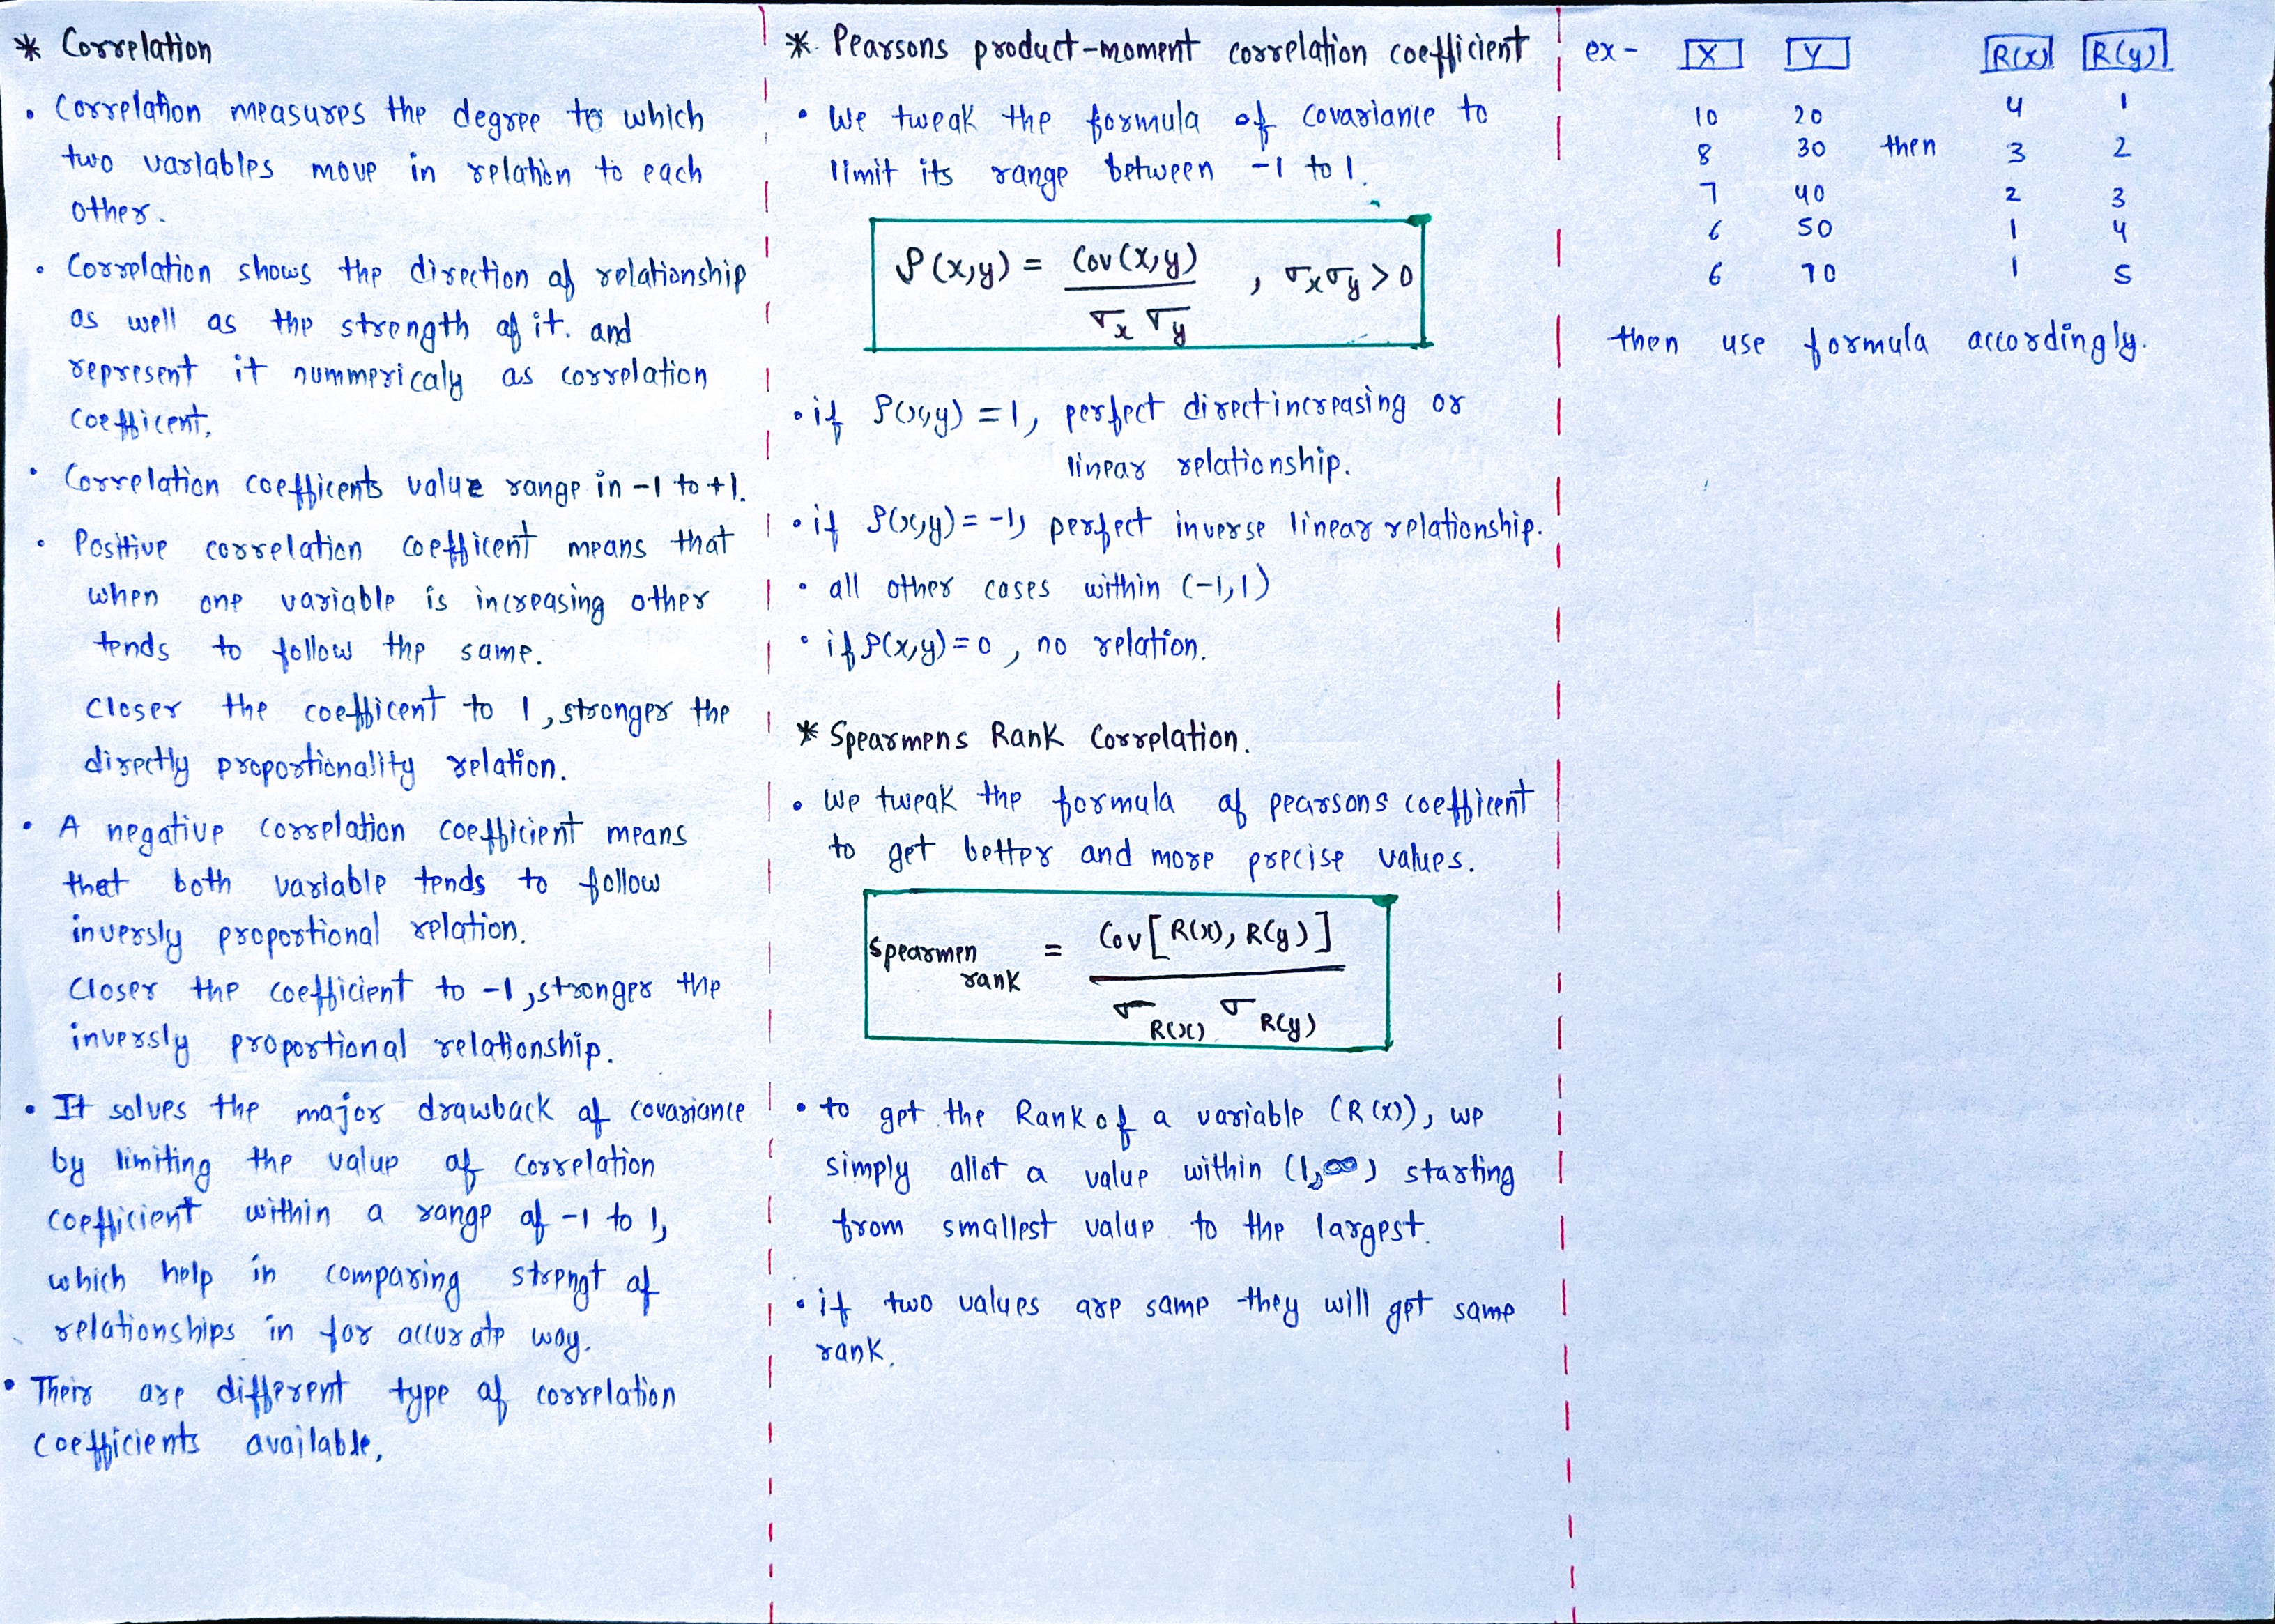 * Correlation
• Correlation measures the degree to which
two variables move in relation to each
other.
• Correlation shows the direction of relationship
as well as the strength of it. and
represent it nummericaly as correlation
coefficent.
• Correlation coefficents value range in -1 to +1.
• Positive correlation coefficent means that
when one variable is increasing other
tends to follow the same.
Closer the coefficent to 1, stronger the
directly proportionality relation.
• A negative correlation coefficient means
that both variable tends to follow
inversly proportional relation.
Closer the coefficient to -1, stronger the
inversly proportional relationship.
• It solves the major drawback of covariance
by limiting the value of correlation
coefficient within a range of -1 to 1,
which help in comparing strengt of
relationships in far accurate way.
• Their are different type of correlation
coefficients available.
* Pearsons product-moment correlation coefficient
• We tweak the formula of covariance to
limit its range between -1 to 1.
ρ(x,y) = Cov(x,y) / σx σy , σxσy > 0
• if ρ(x,y) = 1, perfect direct increasing or
linear relationship.
• if ρ(x,y) = -1, perfect inverse linear relationship.
• all other cases within (-1,1)
• if ρ(x,y) = 0, no relation.
* Spearmens Rank Correlation.
• We tweak the formula of pearsons coefficent
to get better and more precise values.
Spearmen rank = Cov[R(x), R(y)] / σR(x) σR(y)
• to get the Rank of a variable (R(x)), we
simply allot a value within (1,∞) starting
from smallest value to the largest.
• if two values are same they will get same
rank.
ex- X Y R(x) R(y)
10 20 4 1
8 30 then 3 2
7 40 2 3
6 50 1 4
6 70 1 5
then use formula accordingly.